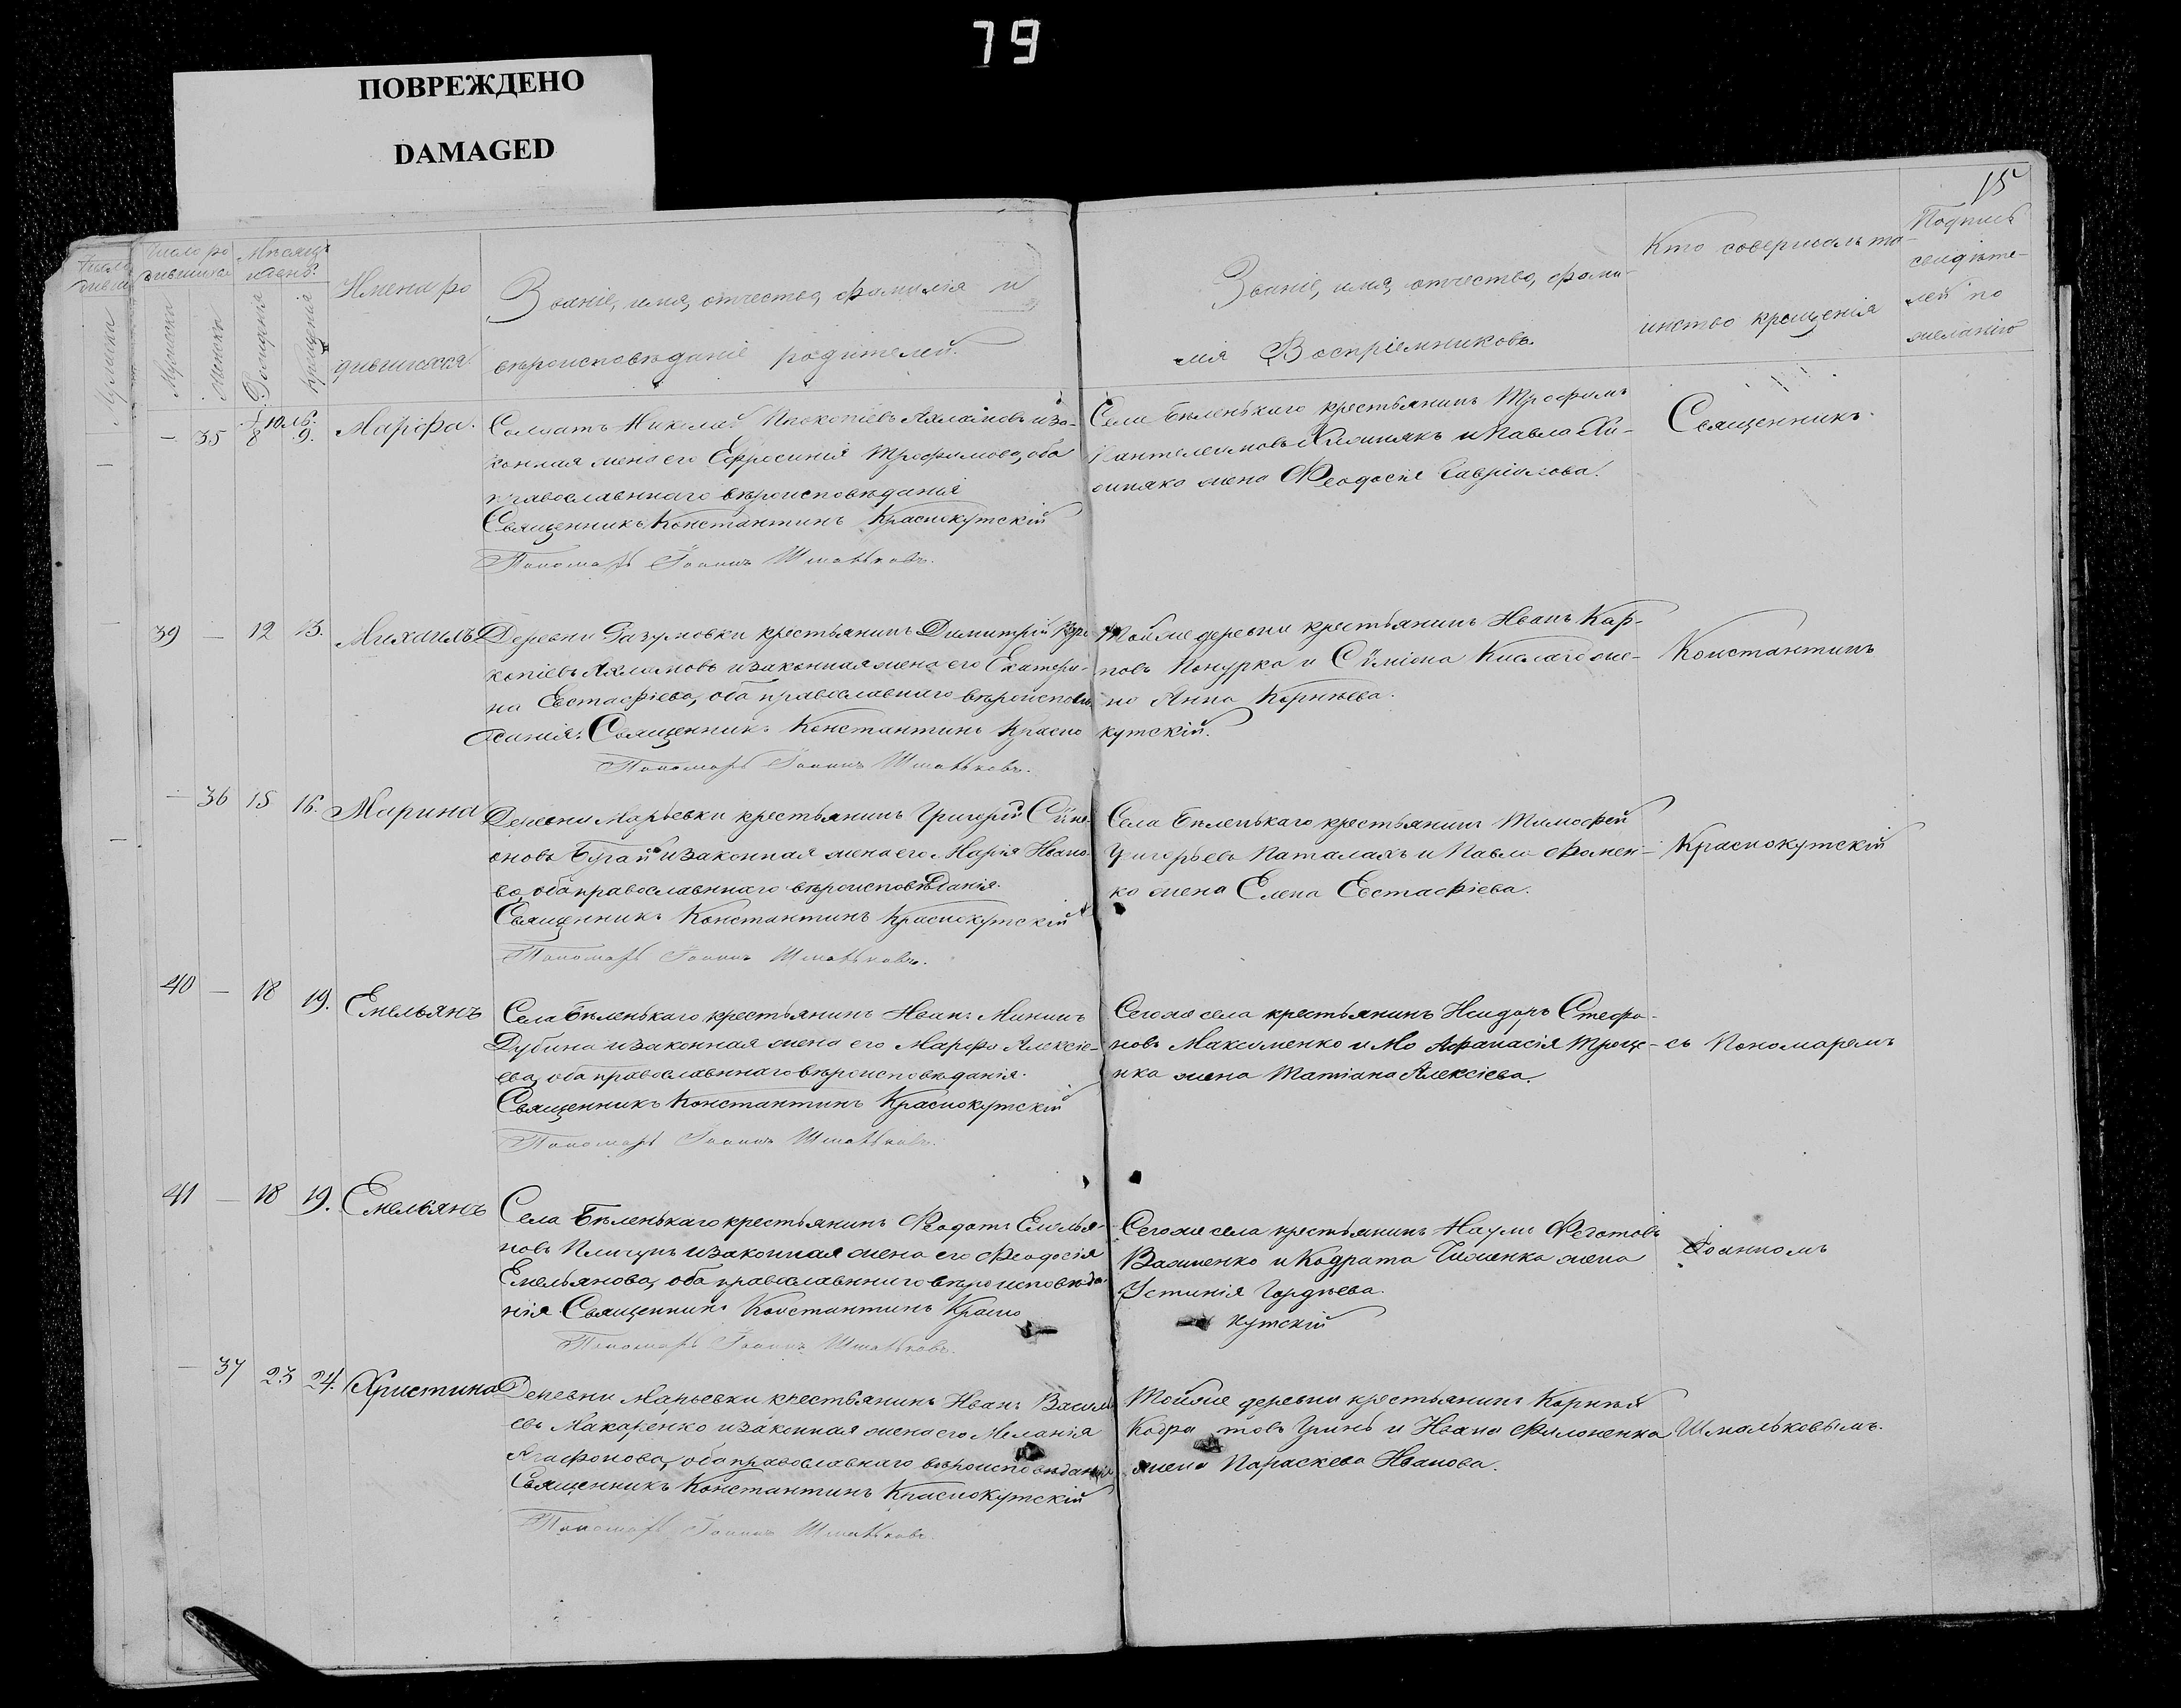 79
ПОВРЕЖДЕНО
DAMAGED
15
Число ро
дившихся
Мѣсяцъ
и день.
Мужеска
Женска
Рожденія
Крещенія
Имена ро
дившихся.
Званіе, имя, отчество, фамилія и
вѣроисповѣданіе родителей.
Званіе, имя, отчество, фами-
лія Воспріемниковъ.
Кто совершалъ та-
инство крещенія
Подпись
свидѣте-
лей по
желанію
— 35 8 9. Марфа.
Солдатъ Николай Прокопіевъ Ахламовъ и за-
конная жена его Ефросинія Трофимова, оба
православннаго вѣроисповѣданія
Священникъ Константинъ Краснокутскій
Пономарь Іоаннъ Шмальковъ.
Села Бѣленькаго крестьянинъ Трофимъ
Пантелеимовъ и Павла
жена Феодосія Гавріилова.
Священникъ
39 — 12 13. Михаилъ
Деревни Разумовки крестьянинъ Димитрій Про
копіевъ Ахламовъ и законная жена его Екатери-
на Евстафіева, оба православнаго вѣроисповѣ
данія. Священникъ Константинъ Красно
кутскій.
Пономарь Іоаннъ Шмальковъ.
Той же деревни крестьянинъ Иванъ Кар-
повъ Понурка и Сѵміона Кислаго же-
на Анна Корнѣева.
Константинъ
— 36 15 16. Марина
Деревни Марьевки крестьянинъ Григорій Сѵме
оновъ Бугай и законная жена его Марія Ивано-
ва, оба православннаго вѣроисповѣданія.
Священникъ Константинъ Краснокутскій
Пономарь Іоаннъ Шмальковъ.
Села Бѣленькаго крестьянинъ Тимофей
Григорьевъ Паталахъ и Павла Фомен-
ко жена Елена Евстафіева.
Краснокутскій
40 — 18 19. Емельянъ
Села Бѣленькаго крестьянинъ Иванъ Мининъ
Дубина и законная жена его Марфа Алексіе-
ева, оба православннаго вѣроисповѣданія.
Священникъ Константинъ Краснокутскій
Пономарь Іоаннъ Шмальковъ.
Сегоже села крестьянинъ Исидоръ Стефа-
новъ Максименко и Афанасія Троце-
нка жена Татіана Алексіева.
съ Пономаремъ
41 — 18 19. Емельянъ
Села Бѣленькаго крестьянинъ Феодотъ Емелья-
новъ Плигунъ и законная жена его Феодосія
Емельянова, оба православннаго вѣроисповѣда-
нія Священникъ Константинъ Красно
кутскій
Пономарь Іоаннъ Шмальковъ.
Сегоже села крестьянинъ Наумъ Федотовъ
Вахненко и Кодрата жена
Устинія Гордѣева.
Іоанномъ
— 37 23 24. Христина
Деревни Марьевки крестьянинъ Иванъ Василь
евъ Макаренко и законная жена его Меланія
Агафонова, оба православнаго вѣроисповѣданія
Священникъ Константинъ Краснокутскій
Пономарь Іоаннъ Шмальковъ.
Той же деревни крестьянинъ Корнѣй
Кодратовъ Гринь и Ивана Филоненка
жена Параскева Иванова.
Шмальковымъ.